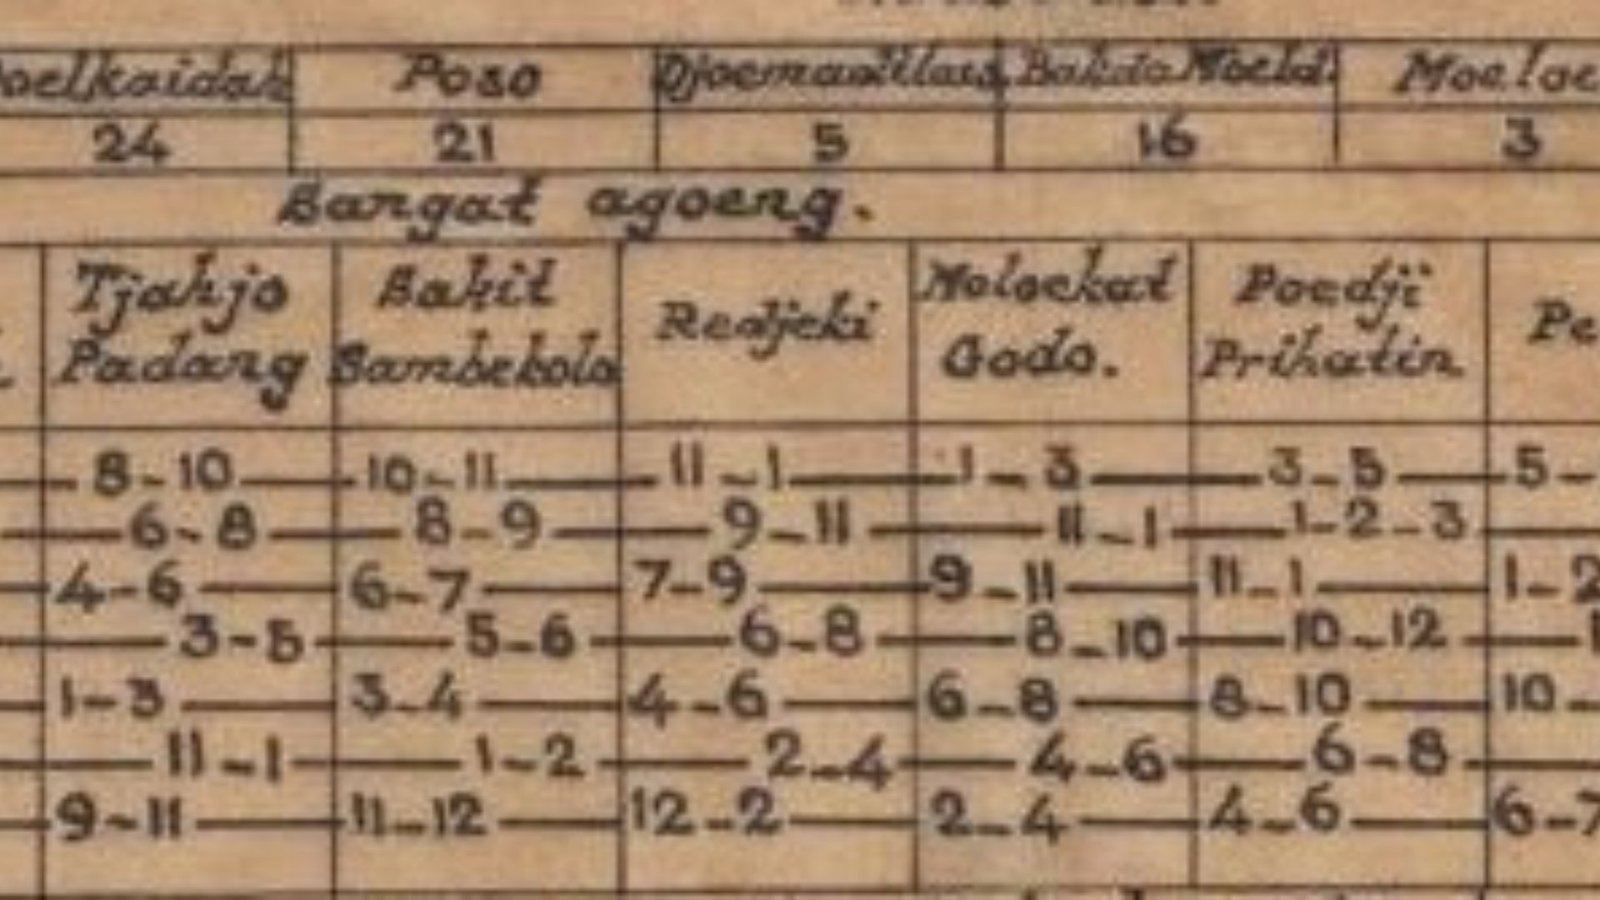 oelkaidah Poso Djoemadillais Bakdo Moeld. Moeloe
24 21 5 16 3
Sangat agoeng.
Tjahjo Sakit Redjeki Moloekat Poedji Pe
Padang Sambekolo Godo. Prihatin
8-10 10-11 11-1 1-3 3-5 5-
6-8 8-9 9-11 11-1 1-2-3
4-6 6-7 7-9 9-11 11-1 1-2
3-5 5-6 6-8 8-10 10-12
1-3 3-4 4-6 6-8 8-10 10-
11-1 1-2 2-4 4-6 6-8
9-11 11-12 12-2 2-4 4-6 6-7